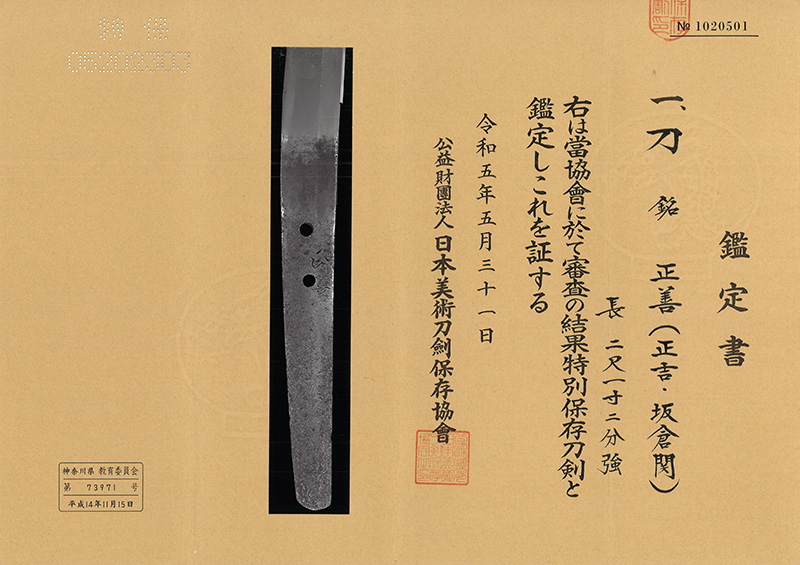 № 1020501
鑑定書
一、刀 銘 正善(正吉・坂倉関)
長 二尺一寸二分強
右は當協會に於て審査の結果特別保存刀剣と
鑑定しこれを証する
令和五年五月三十一日
公益財團法人 日本美術刀劍保存協會
特保
05202303
神奈川県 教育委員会
第 73971 号
平成14年11月15日